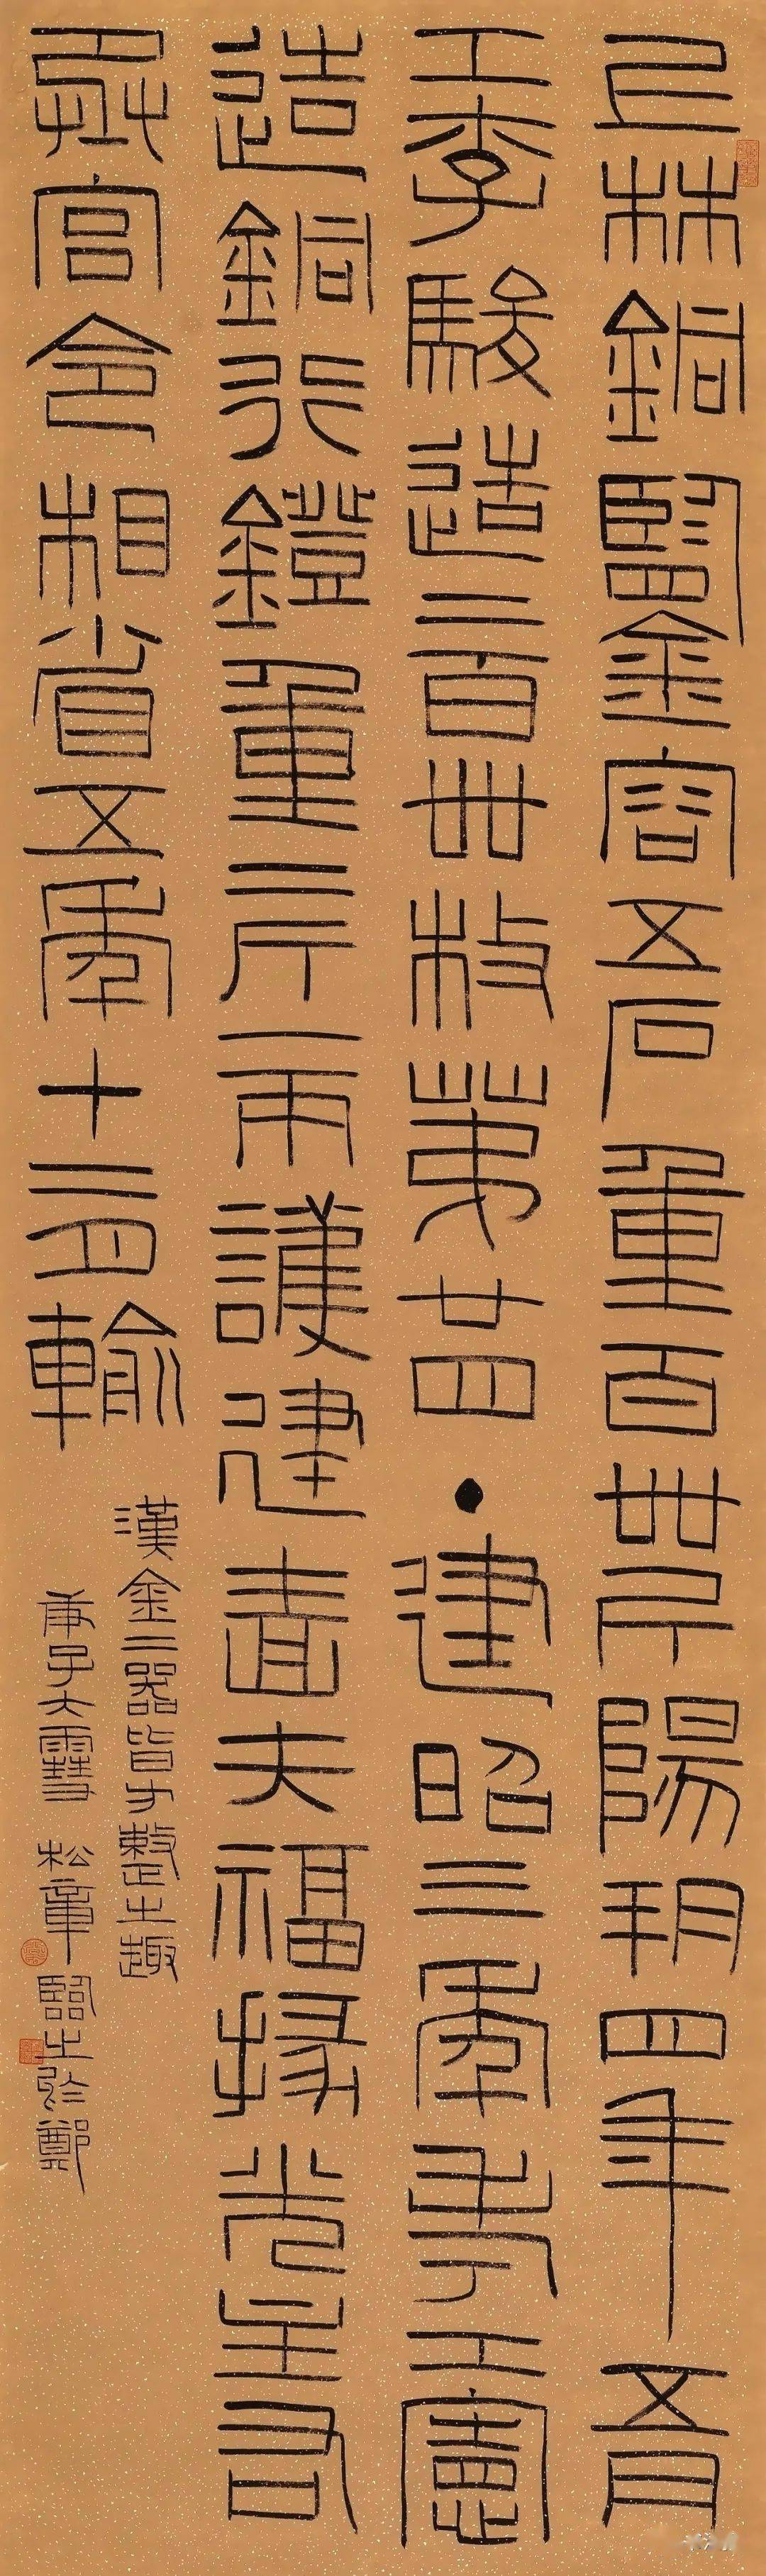 上林銅鑒容五石重百卅斤陽朔四年五月
工李駿造二百卌枚第廿四・建昭三年考工憲
造銅行鐙重二斤一兩護建嗇夫福掾光主右
丞宮令相省五年十二月輸
漢金二器皆方整之趣
庚子大雪 松章臨之於鄭